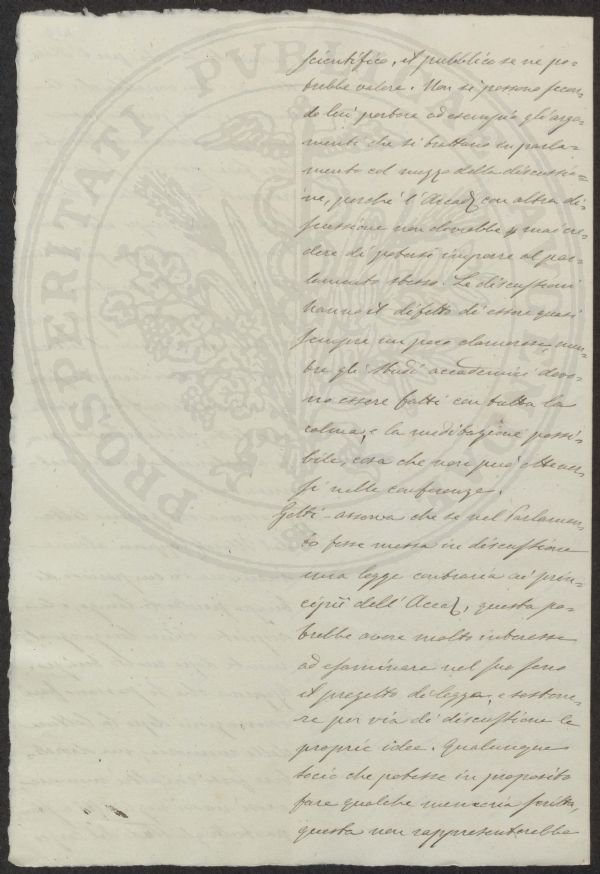 PROSPERITATI PUBLICAE AUGENDAE
scientifico, il pubblico se ne po-
trebbe valere. Non si possono secon-
do lui portare ad esempio gli argo-
menti che si trattano in parla-
mento col mezzo della discussio-
ne, perchè l'Accad. con altra di-
scussione non dovrebbe mai cre-
dere di potersi imporre al par-
lamento stesso. Le discussioni
hanno il difetto di essere quasi
sempre un poco clamorose, men-
tre gli studi accademici devo-
no essere fatti con tutta la
calma, e la meditazione possi-
bile, cosa che non può ottener-
si nelle conferenze.
Gotti - osserva che se nel Parlamen-
to fosse messa in discussione
una legge contraria ai prin-
cipii dell'Accad., questa po-
trebbe avere molto interesse
ad esaminare nel suo seno
il progetto di legge, e sostene-
re per via di discussione le
proprie idee. Qualunque
socio che potesse in proposito
fare qualche memoria scritta,
questa non rappresenterebbe